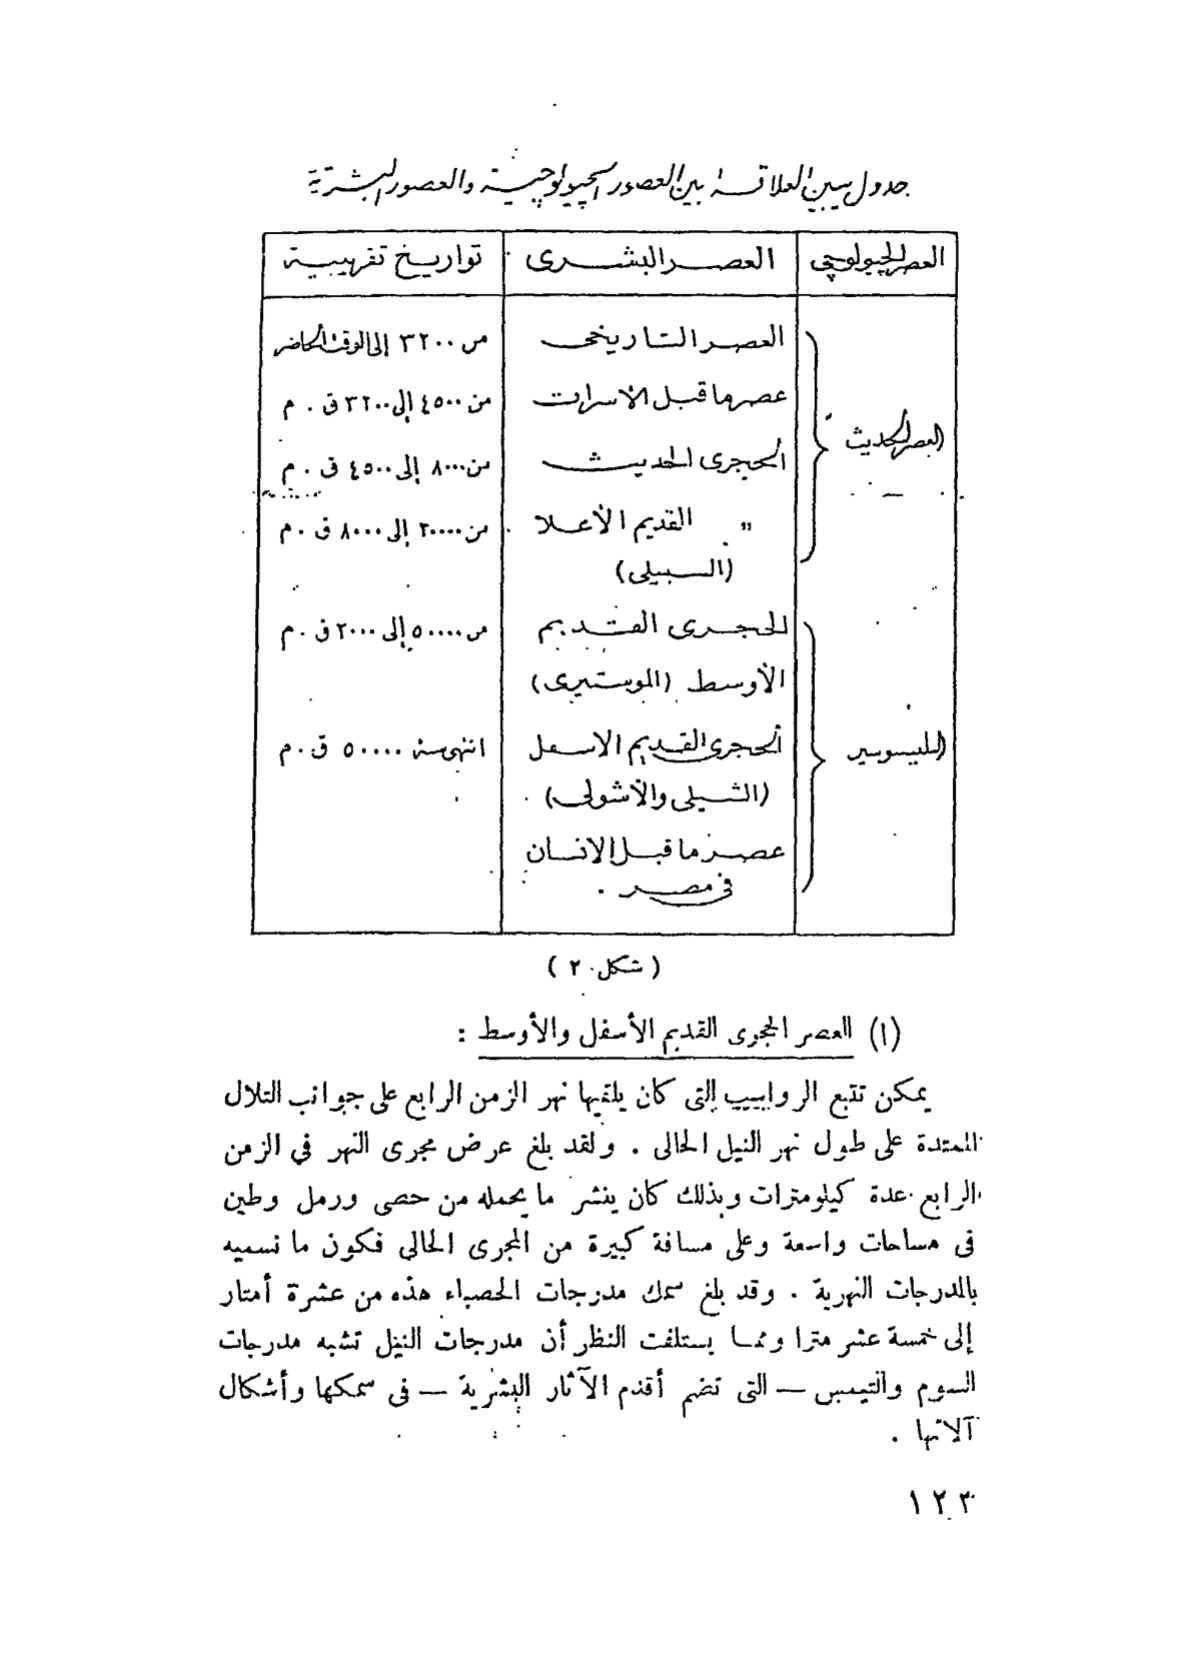 جدول يبين العلاقة بين العصور الجيولوجية والعصور البشرية
العصر الجيولوجى العصر البشرى تواريخ تقريبية
العصر التاريخى من ٣٢٠٠ إلى الوقت الحاضر
عصر ما قبل الاسرات من ٤٥٠٠ إلى ٣٢٠٠ ق . م
العصر الحديث
الحجرى الحديث من ٨٠٠٠ إلى ٤٥٠٠ ق . م
" القديم الأعلا من ٢٠٠٠٠ إلى ٨٠٠٠ ق . م
(السبيلى)
الحجرى القديم من ٥٠٠٠٠ إلى ٢٠٠٠ ق . م
الأوسط (الموستيرى)
البليسوسير الحجرى القديم الاسفل انتهى سنة ٥٠٠٠٠ ق . م
(الشيلى والأشولى)
عصر ما قبل الانسان
فى مصر .
( شكل ٢ )
(١) العصر الحجرى القديم الأسفل والأوسط :
يمكن تتبع الرواسب التى كان يلقيها نهر الزمن الرابع على جوانب التلال
الممتدة على طول نهر النيل الحالى . ولقد بلغ عرض مجرى النهر في الزمن
الرابع عدة كيلومترات وبذلك كان ينشر ما يحمله من حصى ورمل وطين
فى مساحات واسعة وعلى مسافة كبيرة من المجرى الحالى فكون ما نسميه
بالمدرجات النهرية . وقد بلغ سمك مدرجات الحصباء هذه من عشرة أمتار
إلى خمسة عشر مترا ومما يستلفت النظر أن مدرجات النيل تشبه مدرجات
السوم والتيمس — التى تضم أقدم الآثار البشرية — فى سمكها وأشكال
آلاتها .
١٢٣